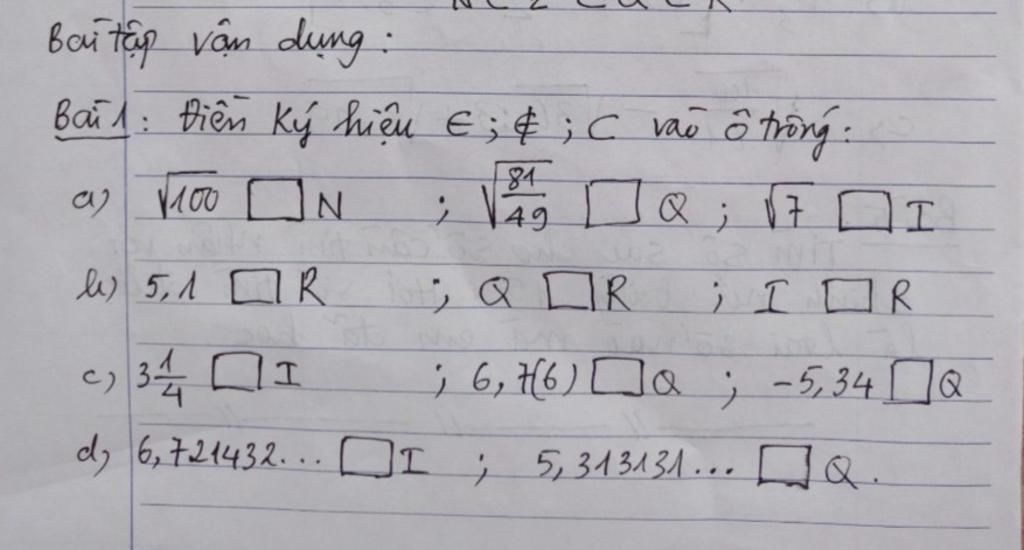 Bài tập vận dụng :
Bài 1 : Điền ký hiệu ∈ ; ∉ ; ⊂ vào ô trống :
a) √100 □ N ; √(81/49) □ Q ; √7 □ I
b) 5,1 □ R ; Q □ R ; I □ R
c) 3 1/4 □ I ; 6,7(6) □ Q ; -5,34 □ Q
d) 6,721432... □ I ; 5,313131... □ Q .